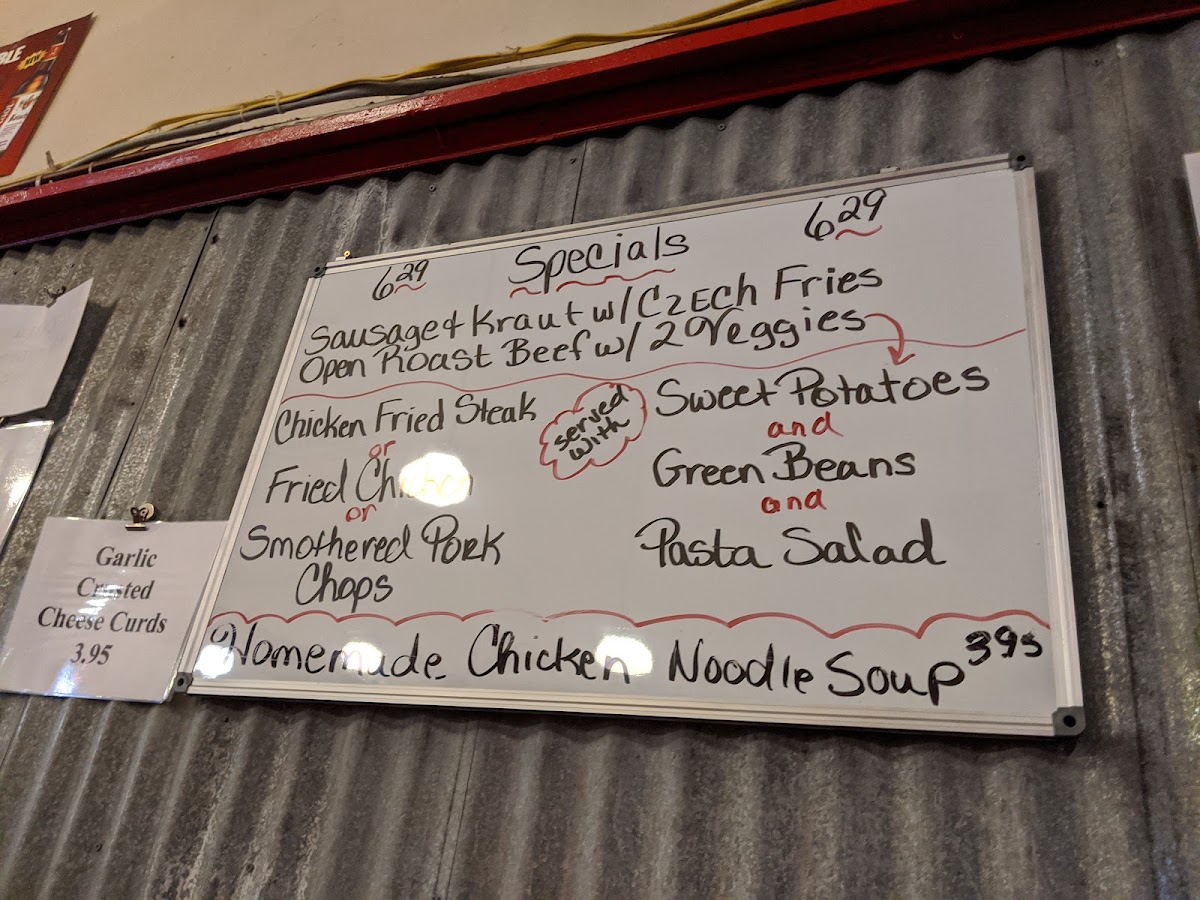 BLE
NEW
6 29 Specials 6 29
Sausage & Kraut w/ CZECH Fries
Open Roast Beef w/ 2 Veggies
Chicken Fried Steak
or
Fried Chicken
or
Smothered Pork
Chops
served
with
Sweet Potatoes
and
Green Beans
and
Pasta Salad
Homemade Chicken Noodle Soup 395
Garlic
Crusted
Cheese Curds
3.95